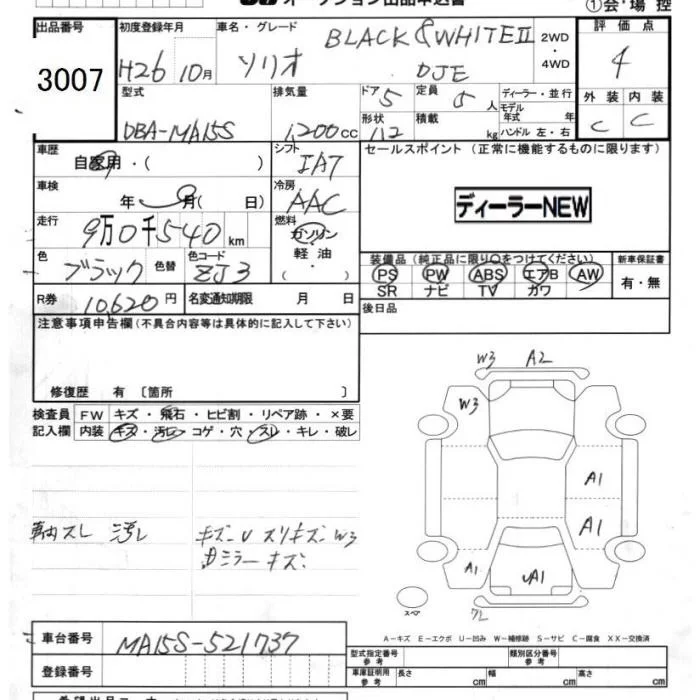 オークション出品申込書
①会・場 控
出品番号 初度登録年月 車名・グレード 評価点
3007 H26 10月 ソリオ BLACK & WHITEⅡ DJE 2WD・4WD 4
型式 排気量 ドア 定員 ディーラー・並行 外装 内装
DBA-MA15S 1,200cc 5 5人 モデル年式 年 C C
形状 112 積載 kg ハンドル 左・右
車歴 自家用・( ) シフト IA7 セールスポイント(正常に機能するものに限ります)
車検 年 月( 日) 冷房 AAC
ディーラーNEW
走行 9万0千540km 燃料 ガソリン
軽油
・( ・ )
色 ブラック 色替 色コード ZJ3 装備品(純正品に限り○をつけてください) 新車保証書
PS PW ABS エアB AW 有・無
SR ナビ TV カワ
R券 10,620円 名変通知期限 月 日 後日品
注意事項申告欄(不具合内容等は具体的に記入して下さい)
修復歴 有〔箇所 〕
検査員 FW キズ・飛石・ヒビ割・リペア跡・×要
記入欄 内装 キズ・汚レ・コゲ・穴・スレ・キレ・破レ
W3 A2
W3
A1
A1
車内スレ 汚レ キズ U スリキズ W3
ミラー キズ
A1 A1
スペア
A-キズ E-エクボ U-凹み W-補修跡 S-サビ C-腐食 XX-交換済
車台番号 MA15S-521737
型式指定番号 参考 類別区分番号 参考
登録番号
車庫証明用 参考 長さ cm 幅 cm 高さ cm